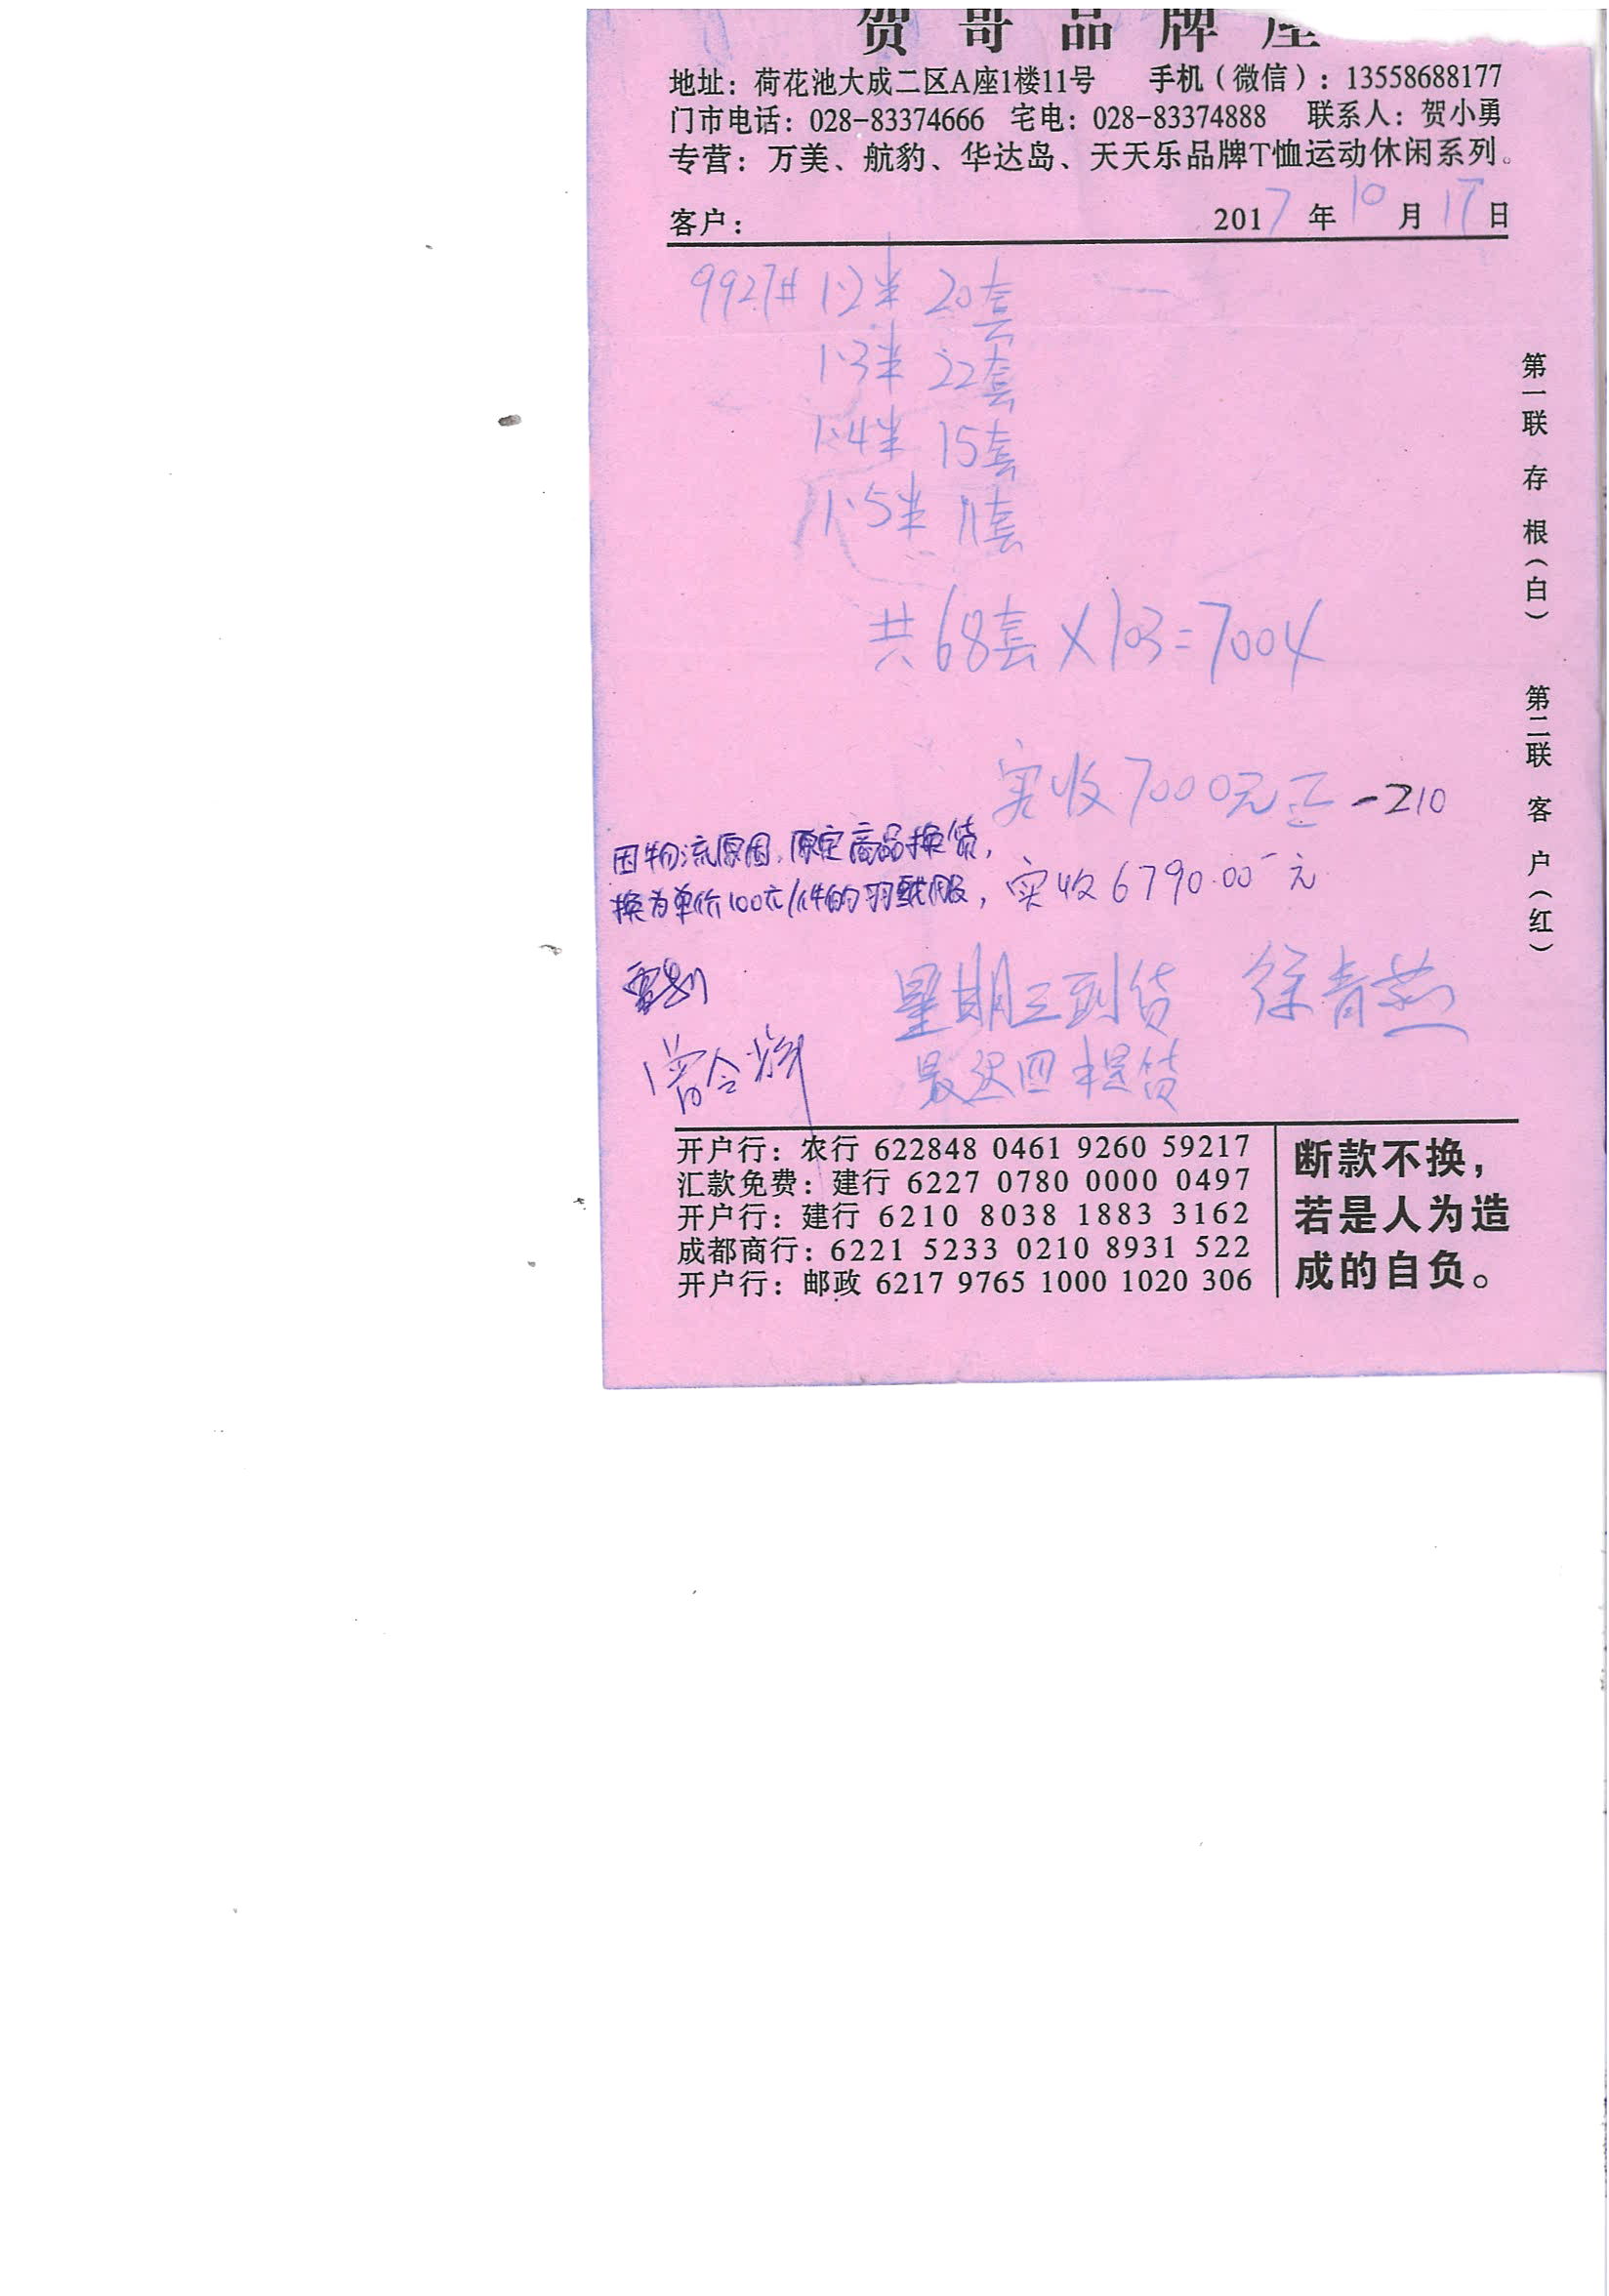 贺哥品牌座
地址：荷花池大成二区A座1楼11号 手机（微信）：13558688177
门市电话：028-83374666 宅电：028-83374888 联系人：贺小勇
专营：万美、航豹、华达岛、天天乐品牌T恤运动休闲系列。
客户： 2017年10月17日
9927# 1.2米 20套
1.3米 22套
1.4米 15套
1.5米 11套
共68套×103=7004
实收7000元正 -210
因物流原因，原定商品换货，
换为单价100元/件的羽绒服，实收6790.00元
星期三到货 徐青燕
最迟四提货
曾令辉
开户行：农行 622848 0461 9260 59217
汇款免费：建行 6227 0780 0000 0497
开户行：建行 6210 8038 1883 3162
成都商行：6221 5233 0210 8931 522
开户行：邮政 6217 9765 1000 1020 306
断款不换，
若是人为造
成的自负。
第一联 存根（白） 第二联 客户（红）